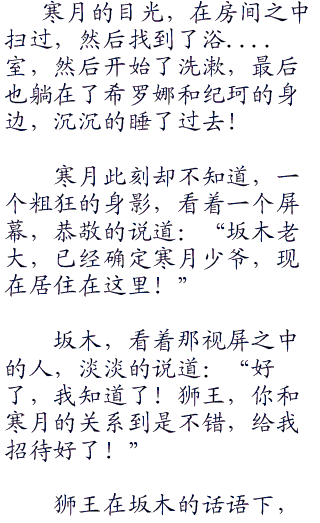 寒月的目光，在房间之中
扫过，然后找到了浴....
室，然后开始了洗漱，最后
也躺在了希罗娜和纪珂的身
边，沉沉的睡了过去！
寒月此刻却不知道，一
个粗狂的身影，看着一个屏
幕，恭敬的说道：“坂木老
大，已经确定寒月少爷，现
在居住在这里！”
坂木，看着那视屏之中
的人，淡淡的说道：“好
了，我知道了！狮王，你和
寒月的关系到是不错，给我
招待好了！”
狮王在坂木的话语下，